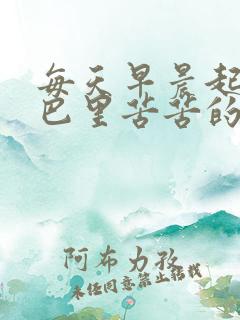 每天早晨起
巴里苦苦的
阿布力孜
未经同意禁止搭载